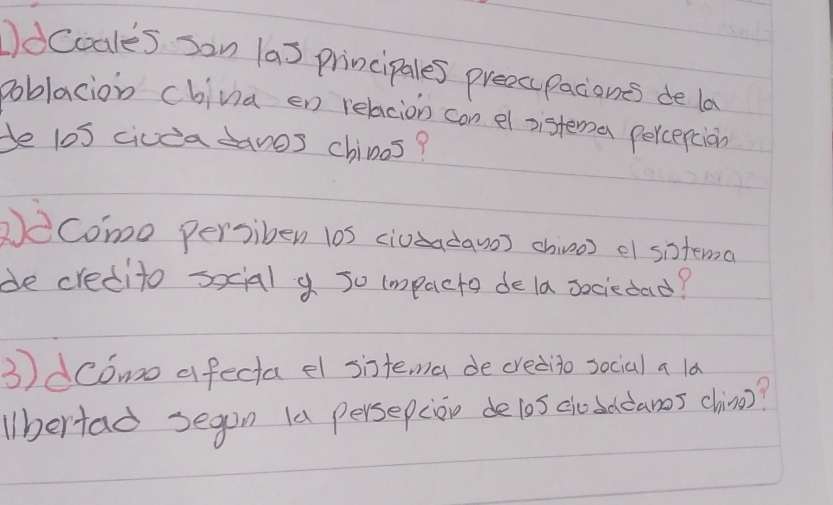 1) ¿Cuáles son las principales preocupaciones de la
población china en relación con el sistema percepción
de los ciudadanos chinos?
2) ¿Cómo persiben los ciudadanos chinos el sistema
de credito social y su impacto de la sociedad?
3) ¿Cómo afecta el sistema de credito social a la
libertad segun la persepción de los ciudadanos chinos?